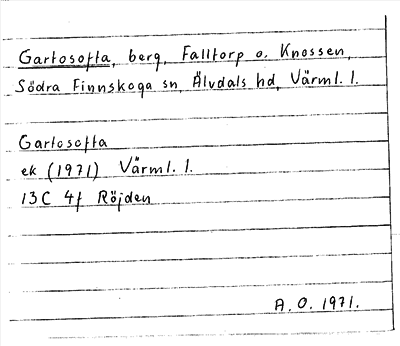 Gartosofta, berg, Falltorp o. Knossen,
Södra Finnskoga sn, Älvdals hd, Värml. l.
Gartosofta
ek (1971) Värml. l.
13C 4f Röjden
A. O. 1971.